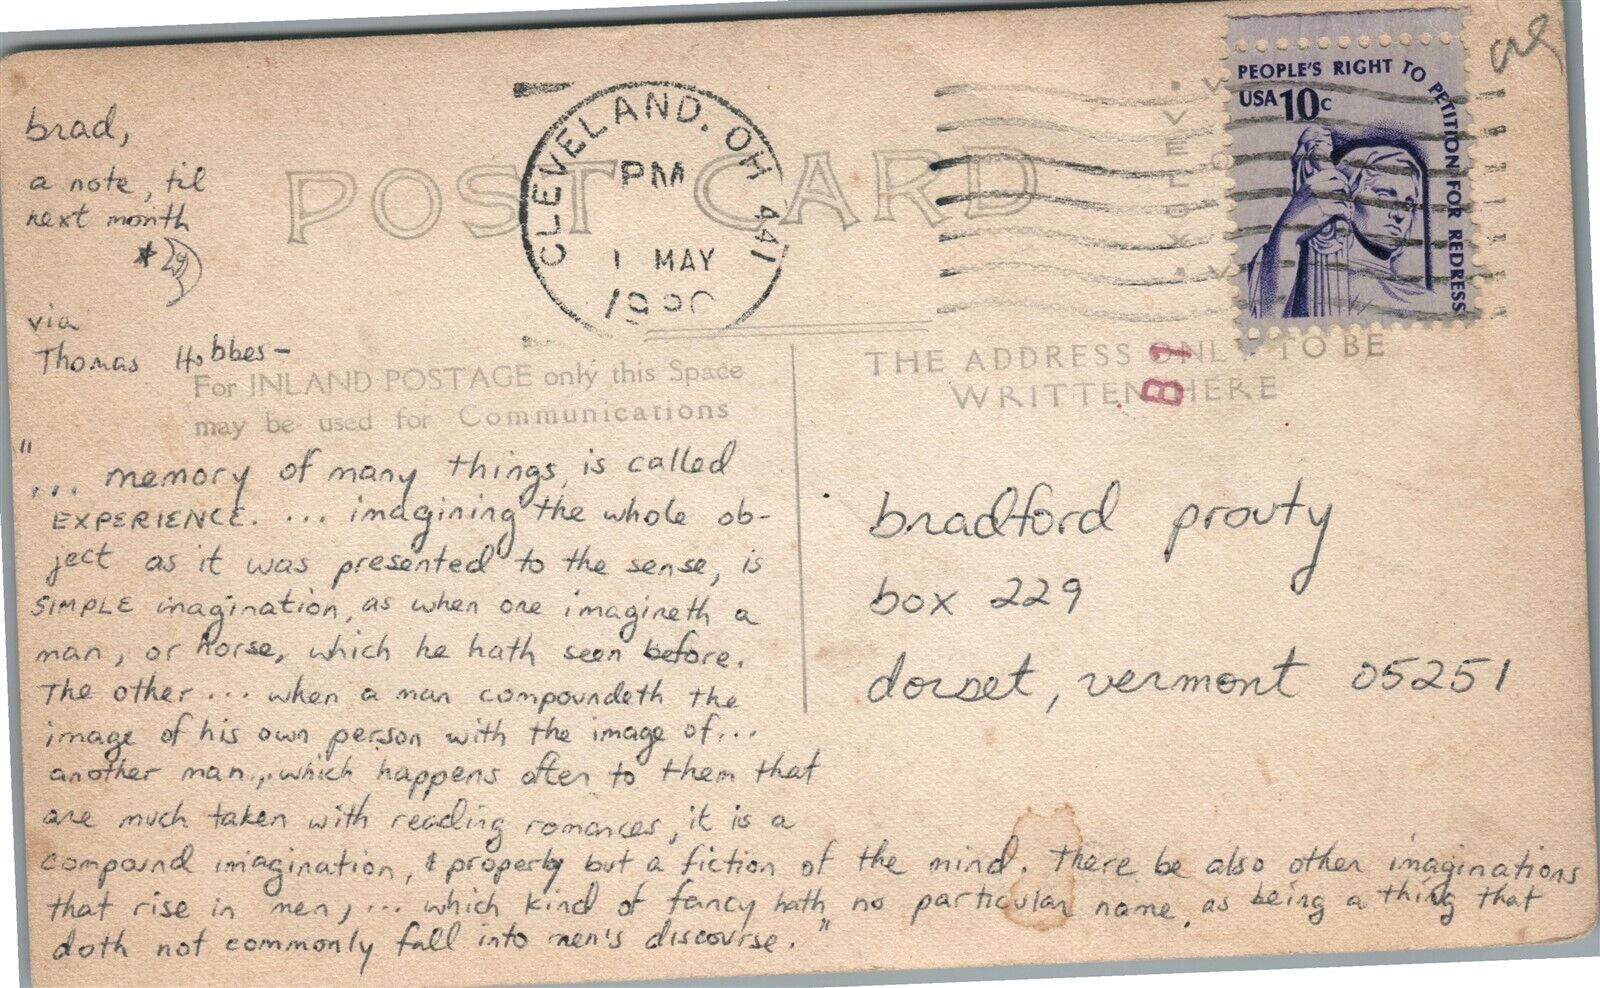 brad,
a note, til
next month
via
Thomas Hobbes-
"... memory of many things, is called
EXPERIENCE. ... imagining the whole ob-
ject as it was presented to the sense, is
SIMPLE imagination, as when one imagineth a
man, or horse, which he hath seen before.
The other ... when a man compoundeth the
image of his own person with the image of...
another man.., which happens often to them that
are much taken with reading romances, it is a
compound imagination, & properly but a fiction of the mind. There be also other imaginations
that rise in men, ... which kind of fancy hath no particular name, as being a thing that
doth not commonly fall into men's discourse."
POST CARD
For INLAND POSTAGE only this Space
may be used for Communications
CLEVELAND, OH 441
PM
1 MAY
PEOPLE'S RIGHT TO PETITION FOR REDRESS
USA 10c
THE ADDRESS ONLY TO BE
WRITTEN HERE
B1
bradford prouty
box 229
dorset, vermont 05251